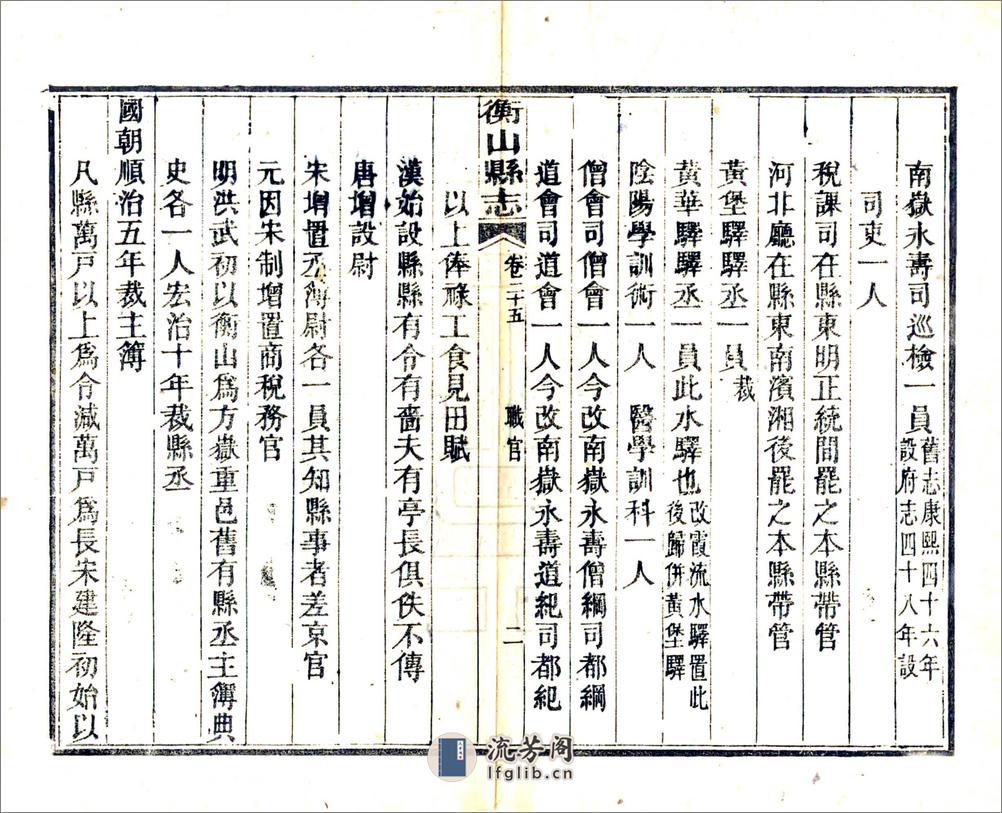 南嶽永壽司巡檢一員舊志康熙四十六年設府志四十八年設
司吏一人
稅課司在縣東明正統間罷之本縣帶管
河北廳在縣東南濱湘後罷之本縣帶管
黃堡驛驛丞一員裁
黃華驛驛丞一員此水驛也改霞流水驛置此後歸併黃堡驛
陰陽學訓術一人 醫學訓科一人
僧會司僧會一人今改南嶽永壽僧綱司都綱
道會司道會一人今改南嶽永壽道紀司都紀
以上俸祿工食見田賦
衡山縣志 卷二十五 職官 二
漢始設縣縣有令有嗇夫有亭長俱佚不傳
唐增設尉
宋增置丞簿尉各一員其知縣事者差京官
元因宋制增置商稅務官
明洪武初以衡山爲方嶽重邑舊有縣丞主簿典
史各一人宏治十年裁縣丞
國朝順治五年裁主簿
凡縣萬戶以上爲令減萬戶爲長宋建隆初始以
流芳阁
lfglib.cn